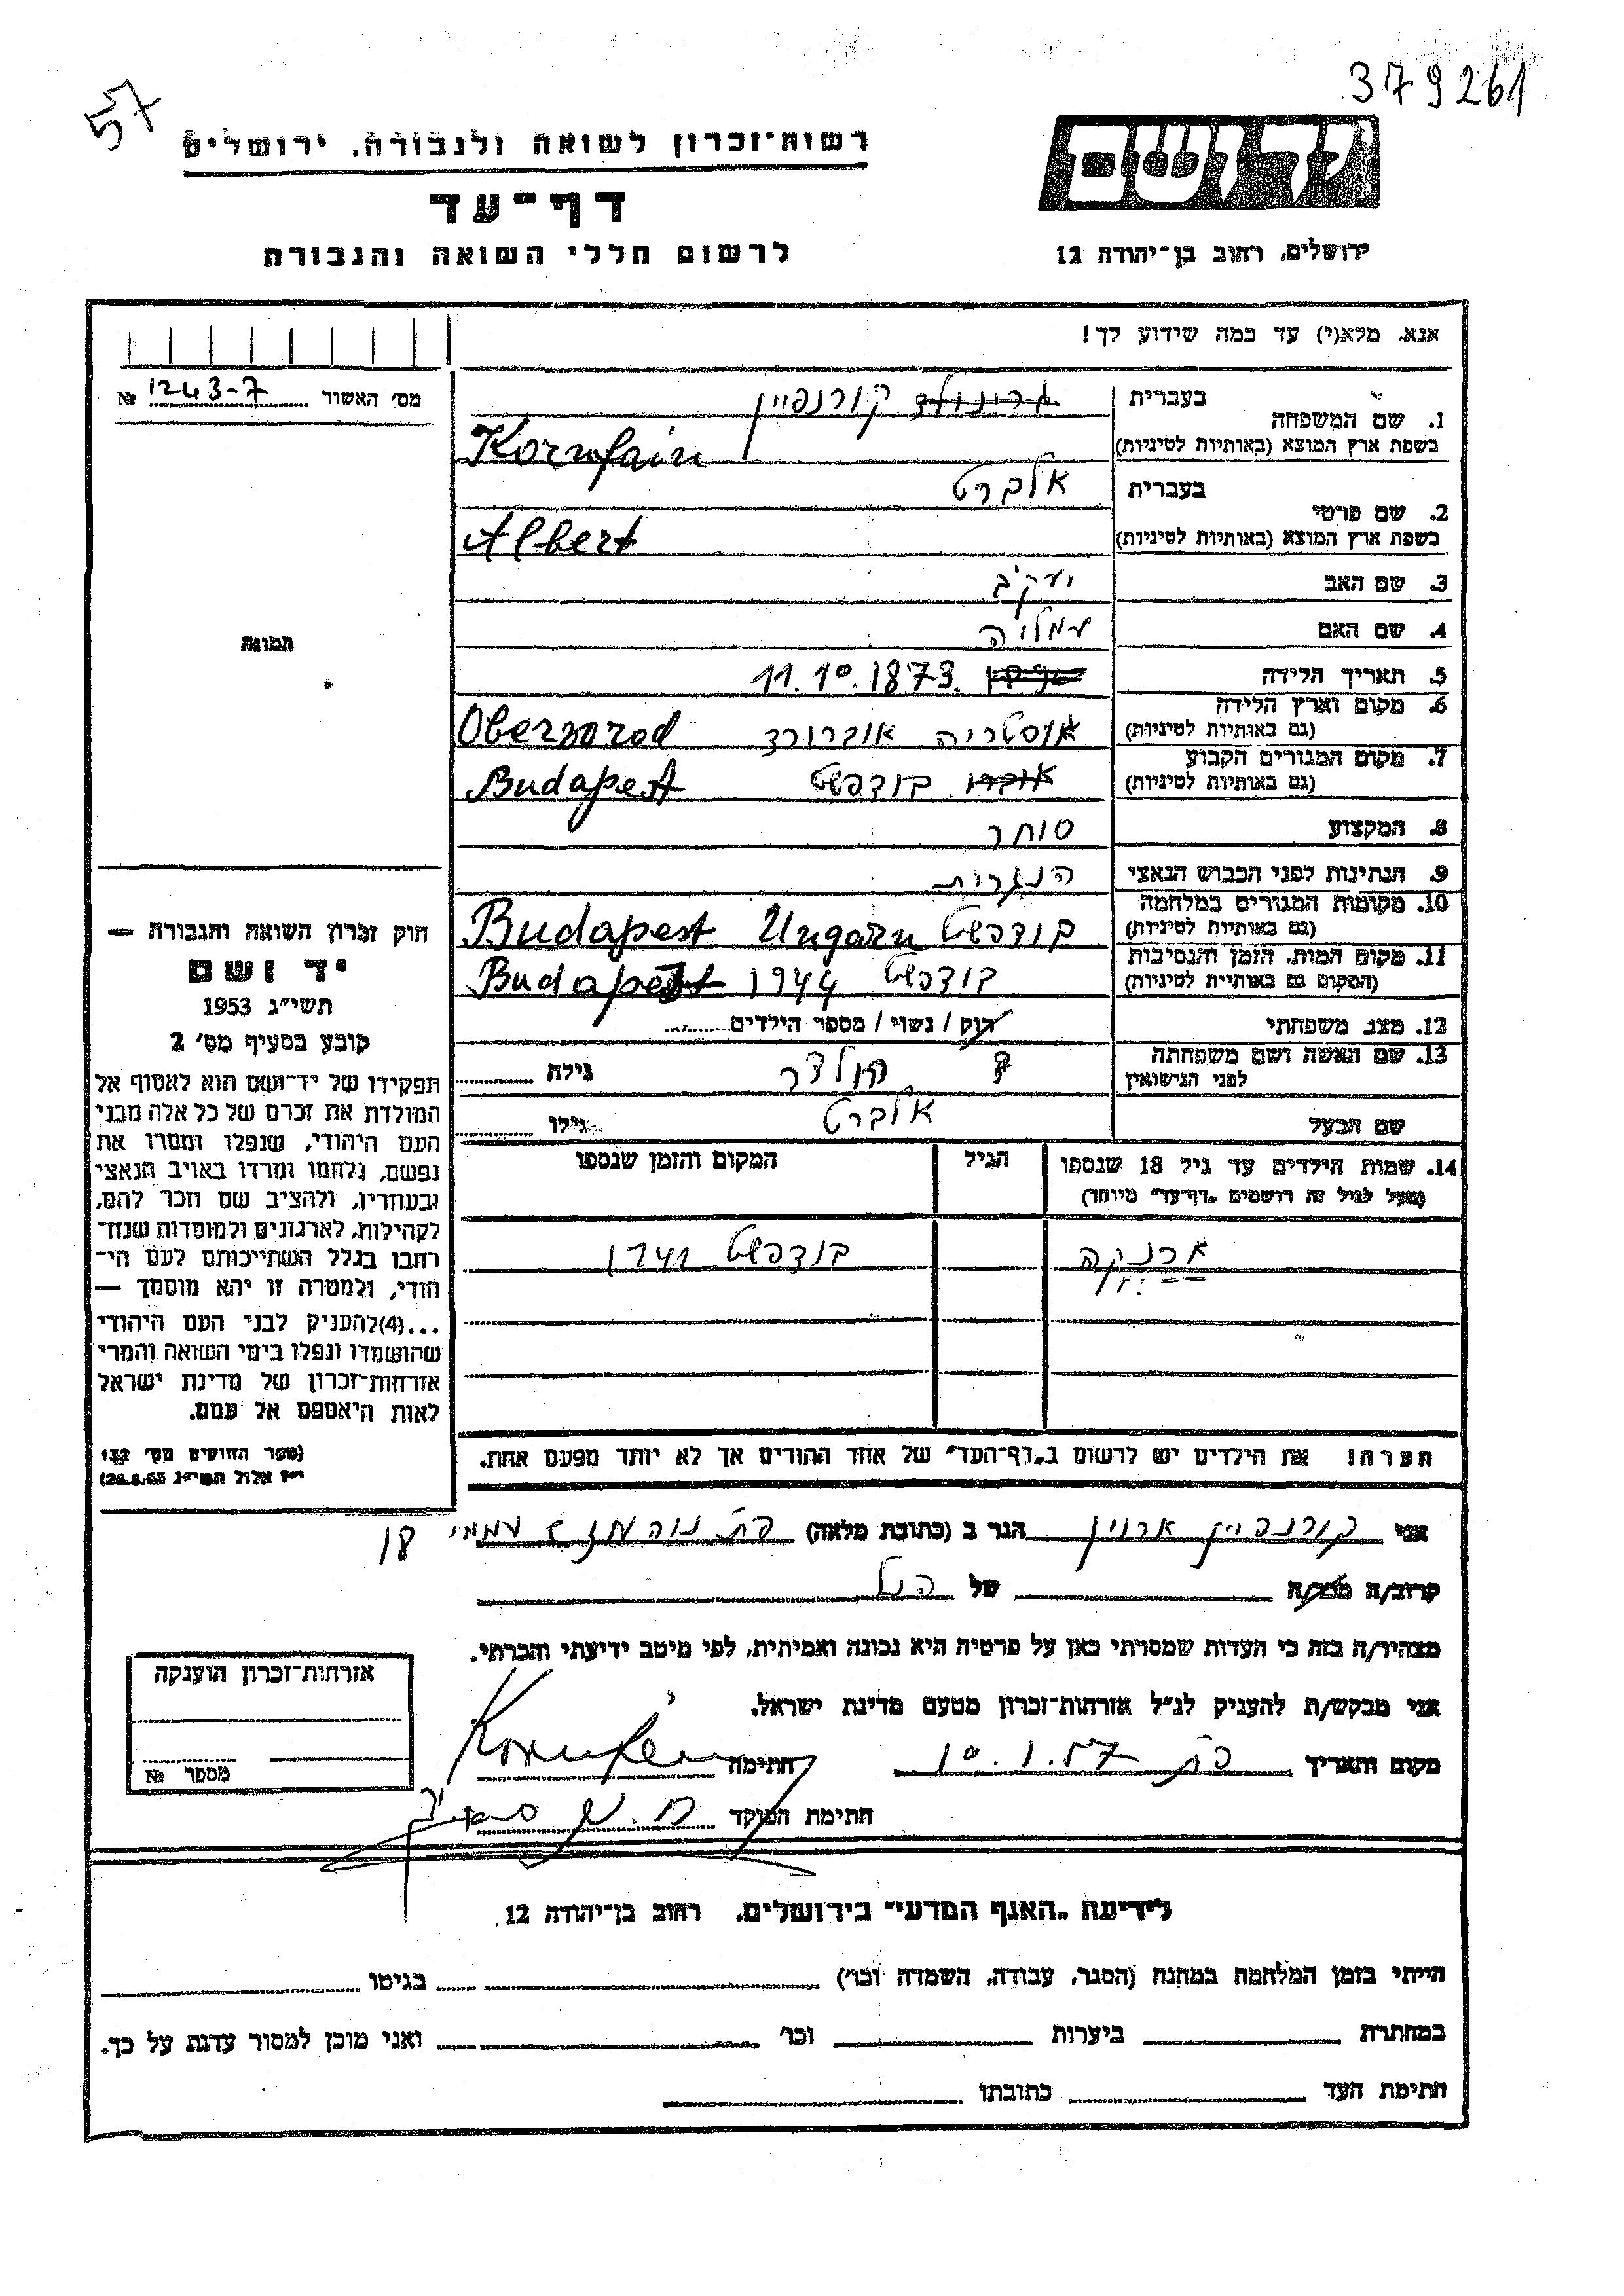 57
379261
ידושם
רשות־זכרון לשואה ולגבורה, ירושלים
דף־עד
לרשום חללי השואה והגבורה
ירושלים, רחוב בן־יהודה 12
אנא, מלא(י) עד כמה שידוע לך!
מס׳ האשור 1243-7 №
1. שם המשפחה
בעברית קורנפיין
בשפת ארץ המוצא (באותיות לטיניות) Kornfain
2. שם פרטי
בעברית אלברט
בשפת ארץ המוצא (באותיות לטיניות) Albert
3. שם האב יעקב
4. שם האם עמליה
5. תאריך הלידה 11.10.1873.
6. מקום וארץ הלידה
(גם באותיות לטיניות) אוסטריה אוברורד Obervorod
7. מקום המגורים הקבוע
(גם באותיות לטיניות) בודפשט Budapest
8. המקצוע סוחר
9. הנתינות לפני הכבוש הנאצי הונגרית
10. מקומות המגורים במלחמה
(גם באותיות לטיניות) בודפשט Budapest Ungarn
11. מקום המות, הזמן והנסיבות
(המקום גם באותיות לטיניות) בודפשט 1944 Budapest
12. מצב משפחתי רוק / נשוי / מספר הילדים
13. שם האשה ושם משפחתה
לפני הנישואין גילה
שם הבעל אלברט גילו
14. שמות הילדים עד גיל 18 שנספו
(מעל לגיל זה רושמים „דף־עד״ מיוחד)
הגיל
המקום והזמן שנספו
בודפשט
הערה! את הילדים יש לרשום ב„דף־העד״ של אחד ההורים אך לא יותר מפעם אחת.
תמונה
חוק זכרון השואה והגבורה —
יד ושם
תשי״ג 1953
קובע בסעיף מס׳ 2
תפקידו של יד־ושם הוא לאסוף אל
המולדת את זכרם של כל אלה מבני
העם היהודי, שנפלו ומסרו את
נפשם, נלחמו ומרדו באויב הנאצי
ובעוזריו, ולהציב שם וזכר להם,
לקהילות, לארגונים ולמוסדות שנח־
רבו בגלל השתייכותם לעם הי־
הודי, ולמטרה זו יהא מוסמך —
...(4)להעניק לבני העם היהודי
שהושמדו ונפלו בימי השואה והמרי
אזרחות־זכרון של מדינת ישראל
לאות היאספם אל עמם.
(ספר החוקים מס׳ 132
י״ז אלול תשי״ג 28.8.53)
אני קורנפיין ארוין הגר ב (כתובת מלאה) 18
קרוב/ה מכר/ה של הנ״ל
מצהיר/ה בזה כי העדות שמסרתי כאן על פרטיה היא נכונה ואמיתית, לפי מיטב ידיעתי והכרתי.
אני מבקש/ת להעניק לנ״ל אזרחות־זכרון מטעם מדינת ישראל.
מקום ותאריך 10.1.57 חתימה
חתימת הפוקד
אזרחות־זכרון הוענקה
מספר №
לידיעת „האגף המדעי״ בירושלים, רחוב בן־יהודה 12.
הייתי בזמן המלחמה במחנה (הסגר, עבודה, השמדה וכו׳) בגיטו
במחתרת ביערות וכו׳ ואני מוכן למסור עדות על כך.
חתימת העד כתובתו